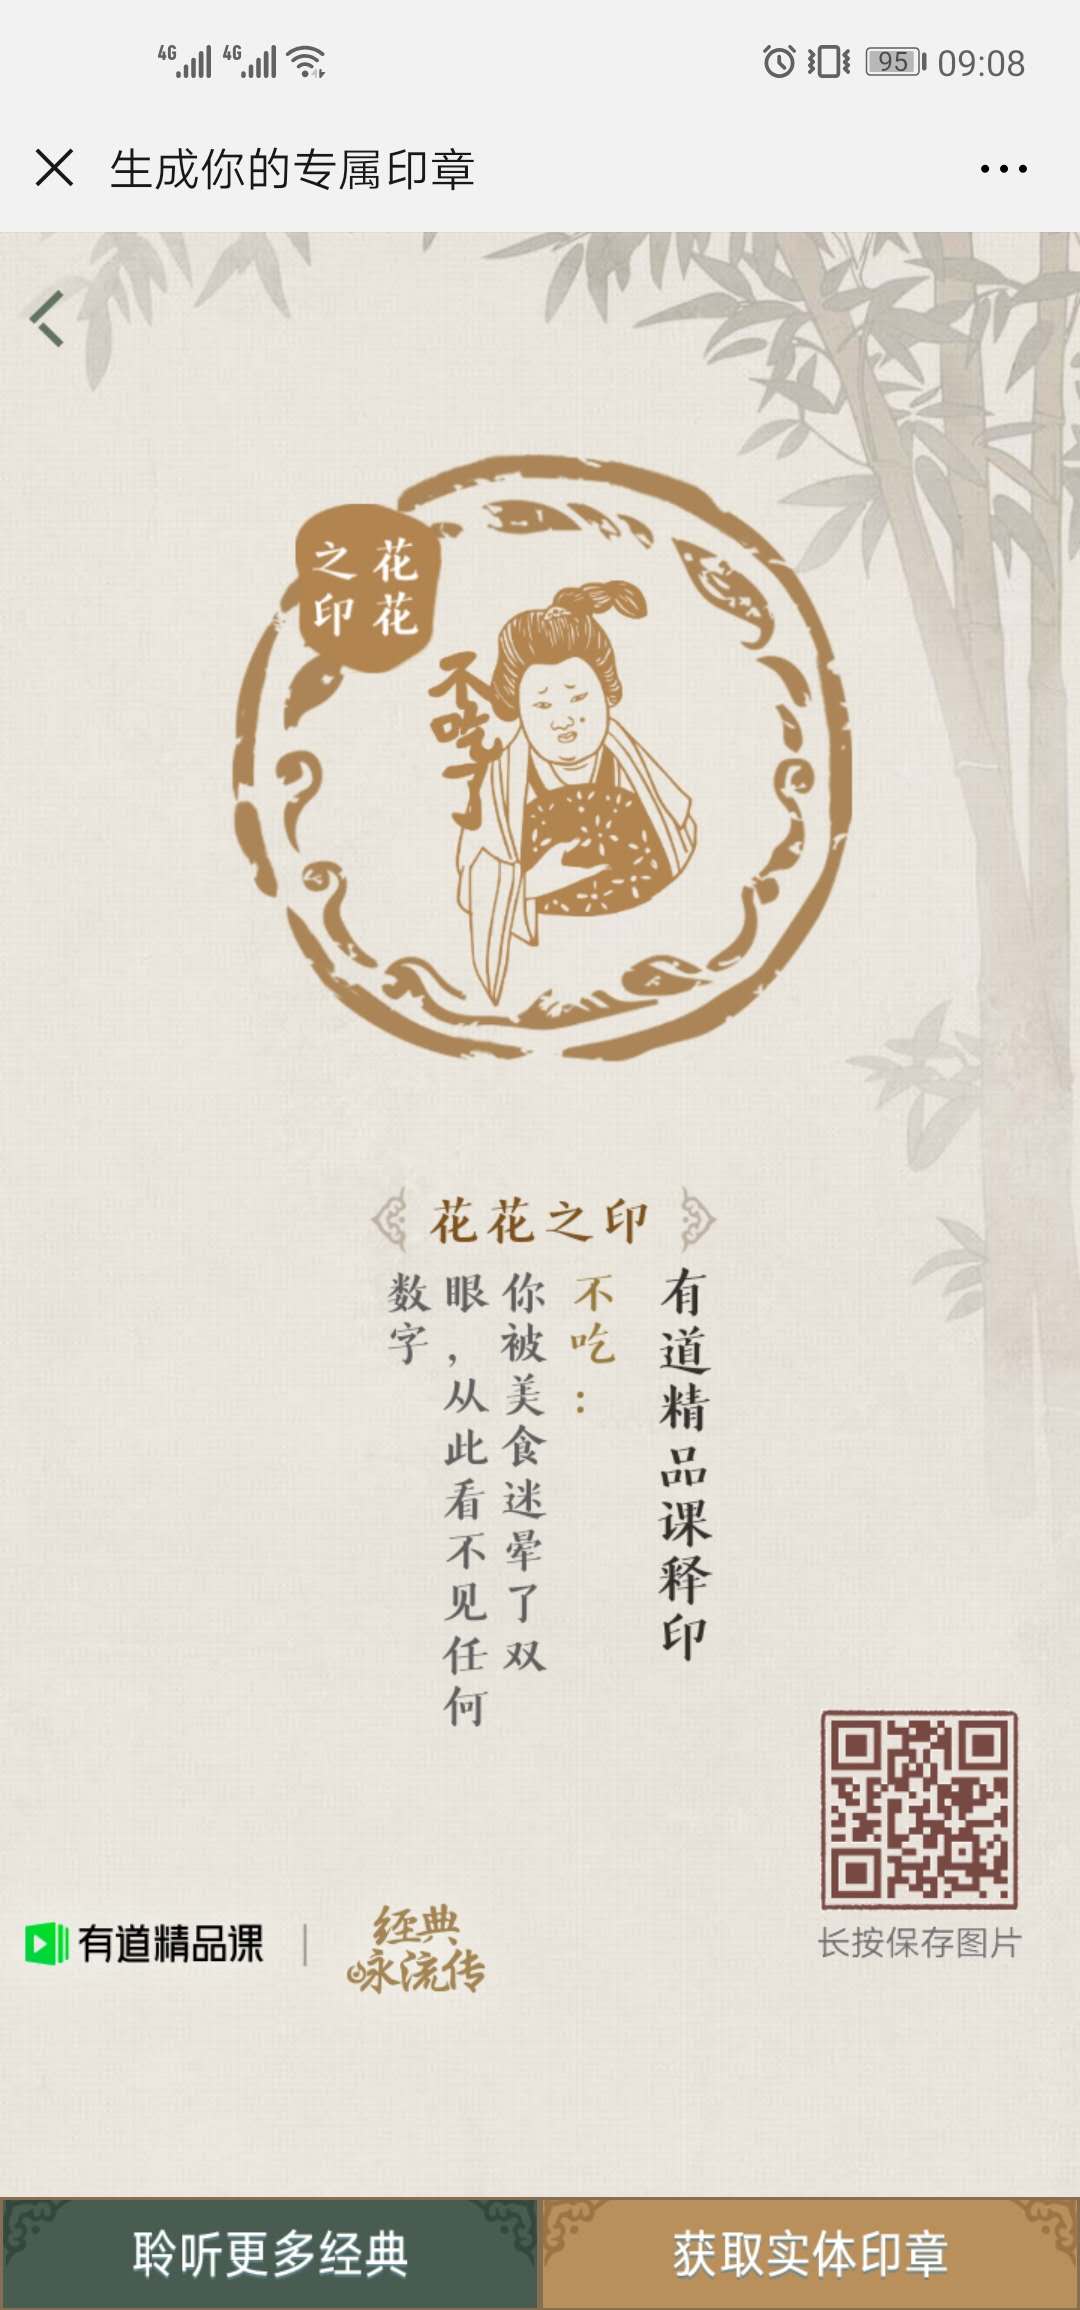 4G 4G 95 09:08
生成你的专属印章
花花
之印
不吃了
花花之印
有道精品课释印
不吃：
你被美食迷晕了双
眼，从此看不见任何
数字
长按保存图片
有道精品课
经典
咏流传
聆听更多经典
获取实体印章